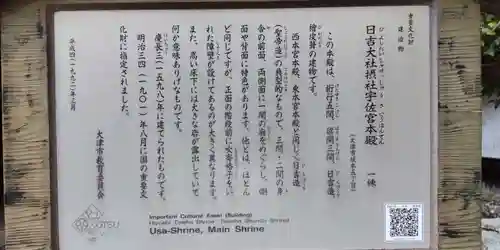 重要文化財
建造物
日吉大社摂社宇佐宮本殿 一棟
(大津市坂本五丁目)
この本殿は、桁行五間、梁間三間、日吉造、
檜皮葺の建物です。
西本宮本殿、東本宮本殿と同じく日吉造
(聖帝造)の典型的なもので、三間・二間の身
舎の前面、両側面に一間の廂をめぐらし、側
面や背面に特色があります。他とは、ほとん
ど同じですが、正面の階段前に吹寄格子をい
れた障壁が設けてあるのが大きく異なります。
また、高い床下には大きな岩が露出していて
何か意味ありげなものです。
慶長三(一五九八)年に建てられたものです。
明治三四(一九〇一)年八月に国の重要文
化財に指定されました。
大津市教育委員会
平成四(一九九二)年三月
OTSU
Important Cultural Asset (Building)
Hiyoshi Taisha Shrine
Usa-Shrine, Main Shrine